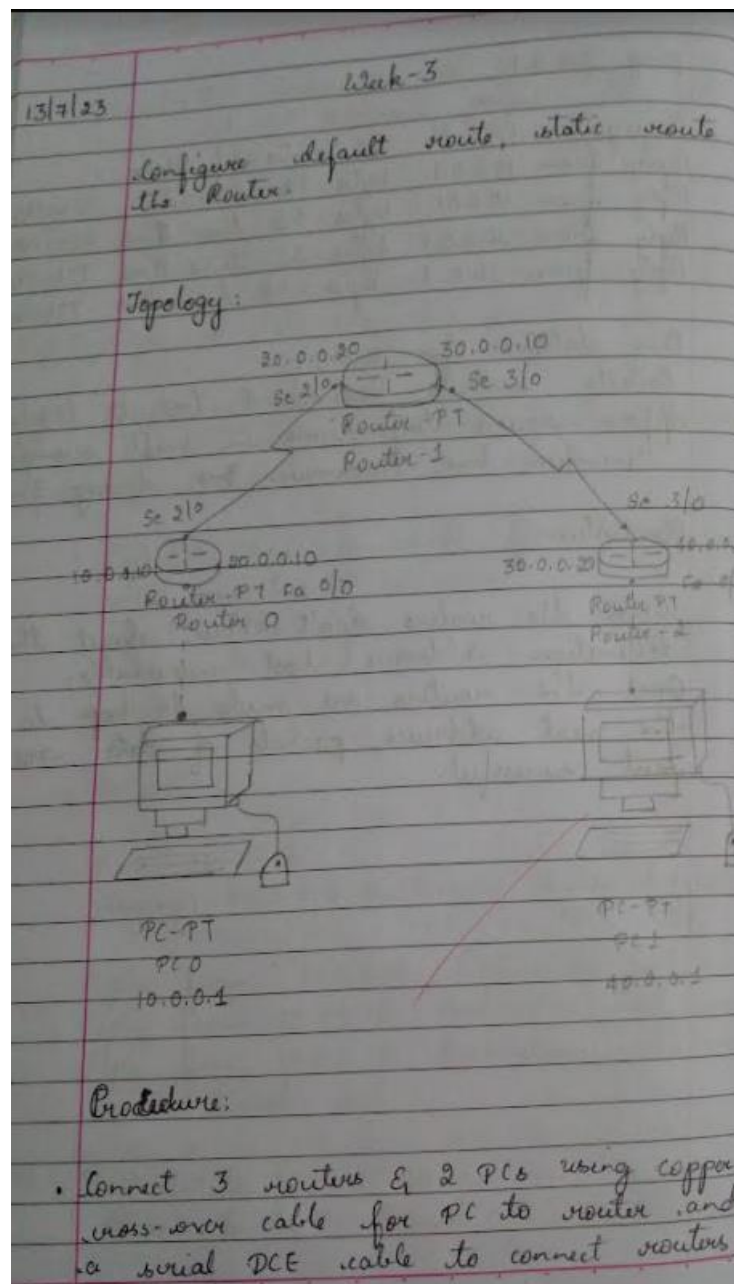 Week-3
13/7/23
Configure default route, static route
the Router.
Topology:
20.0.0.20 30.0.0.10
Se 2/0 Se 3/0
Router-PT
Router-1
Se 2/0 Se 3/0
10.0.0.10 20.0.0.10 30.0.0.20
Router-PT Fa 0/0 Router PT
Router 0 Router-2
PC-PT PC-PT
PC 0 PC 1
10.0.0.1 40.0.0.1
Procedure:
• Connect 3 routers & 2 PCs using copper
cross-over cable for PC to router and
a serial DCE cable to connect routers